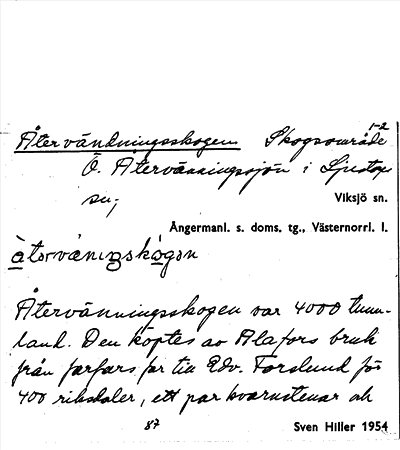 1-2
Återvändningsskogen Skogsområde
Ö. Återvänningssjön i Ljustorps
sn;
Viksjö sn.
Ångermanl. s. doms. tg., Västernorrl. l.
àtərvæniŋskógən
Återvänningsskogen var 4000 tunn-
land. Den köptes av Alafors bruk
från farfars far till Edv. Forslund för
400 riksdaler, ett par kvarnstenar och
87
Sven Hiller 1954